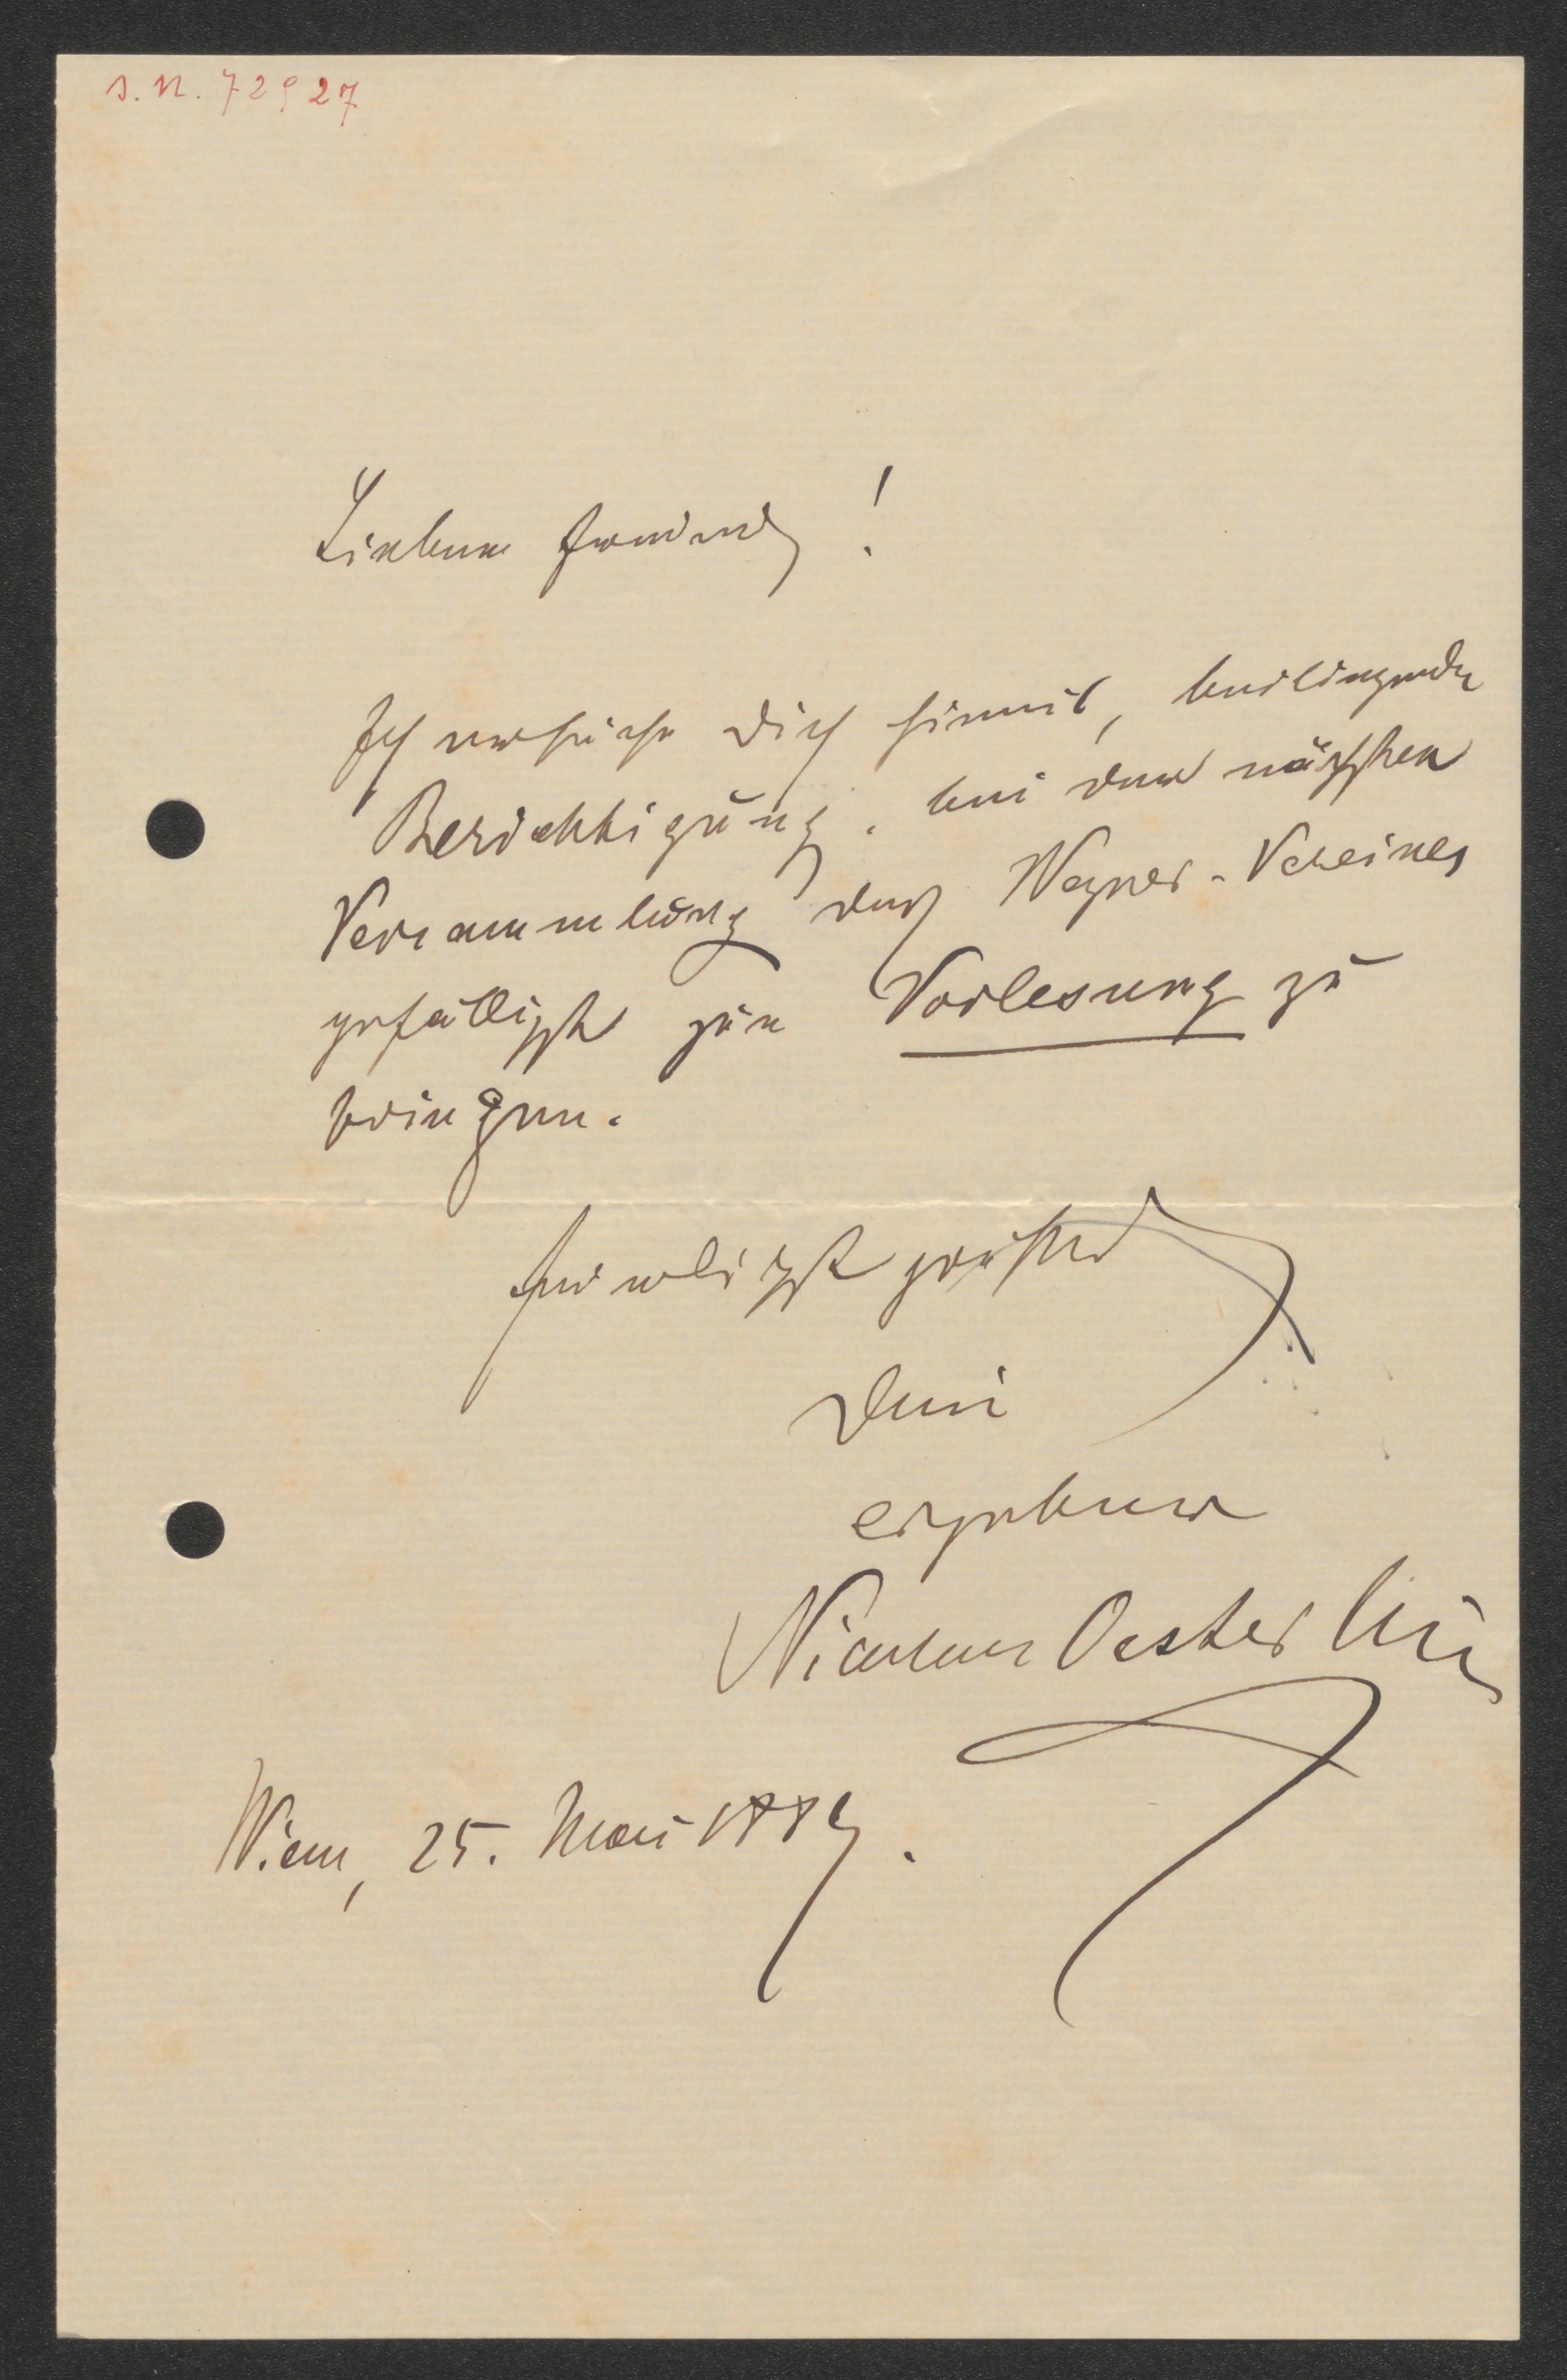 s. N. 72927
Lieber Freund!
Ich ersuche Dich hiemit, beiliegende
Berichtigung, bei der nächsten
Versammlung des Wagner-Vereines
gefälligst zur Vorlesung zu
bringen.
Freundlichst grüßend
Dein
ergebener
Nicolaus Oesterlein
Wien, 25. Mai 1884.